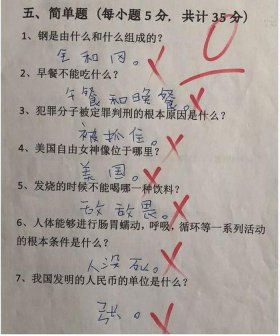 五、简单题（每小题 5 分，共计 35 分）
0
1、钢是由什么和什么组成的？
全和冈。
2、早餐不能吃什么？
午餐和晚餐。
3、犯罪分子被定罪判刑的根本原因是什么？
被抓住。
4、美国自由女神像位于哪里？
美国。
5、发烧的时候不能喝哪一种饮料？
敌敌畏。
6、人体能够进行肠胃蠕动，呼吸，循环等一系列活动
的根本条件是什么？
人没死。
7、我国发明的人民币的单位是什么？
张。